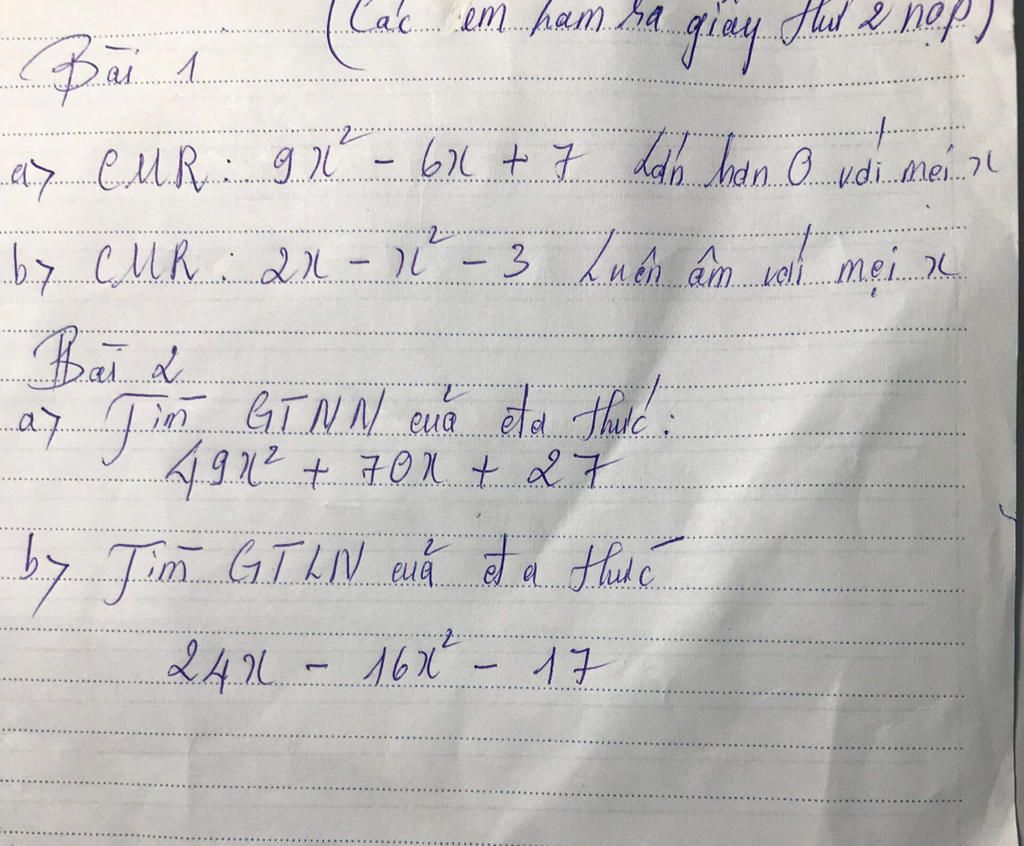 (Các em ham ra giấy thứ 2 nộp)
Bài 1
a> CMR: 9x² - 6x + 7 Lớn hơn 0 với mọi x
b> CMR: 2x - x² - 3 Luôn âm với mọi x
Bài 2
a> Tìm GTNN của đa thức:
49x² + 70x + 27
b> Tìm GTLN của đa thức
24x - 16x² - 17